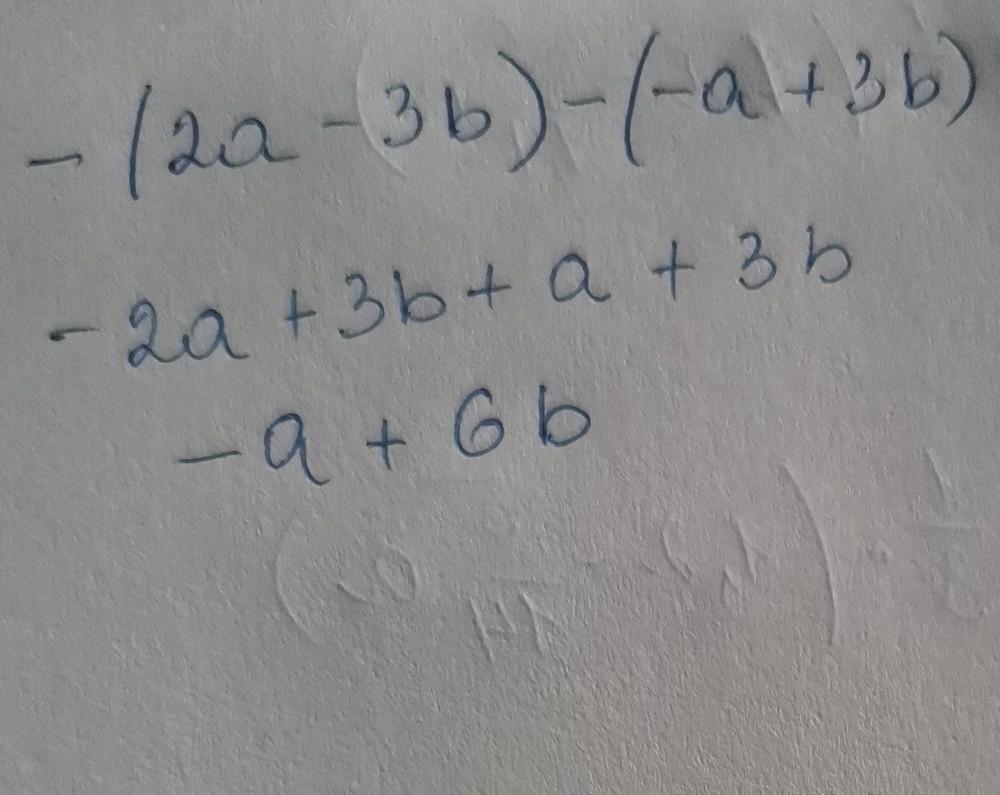 -(2a-3b)-(-a+3b)
-2a+3b+a+3b
-a+6b